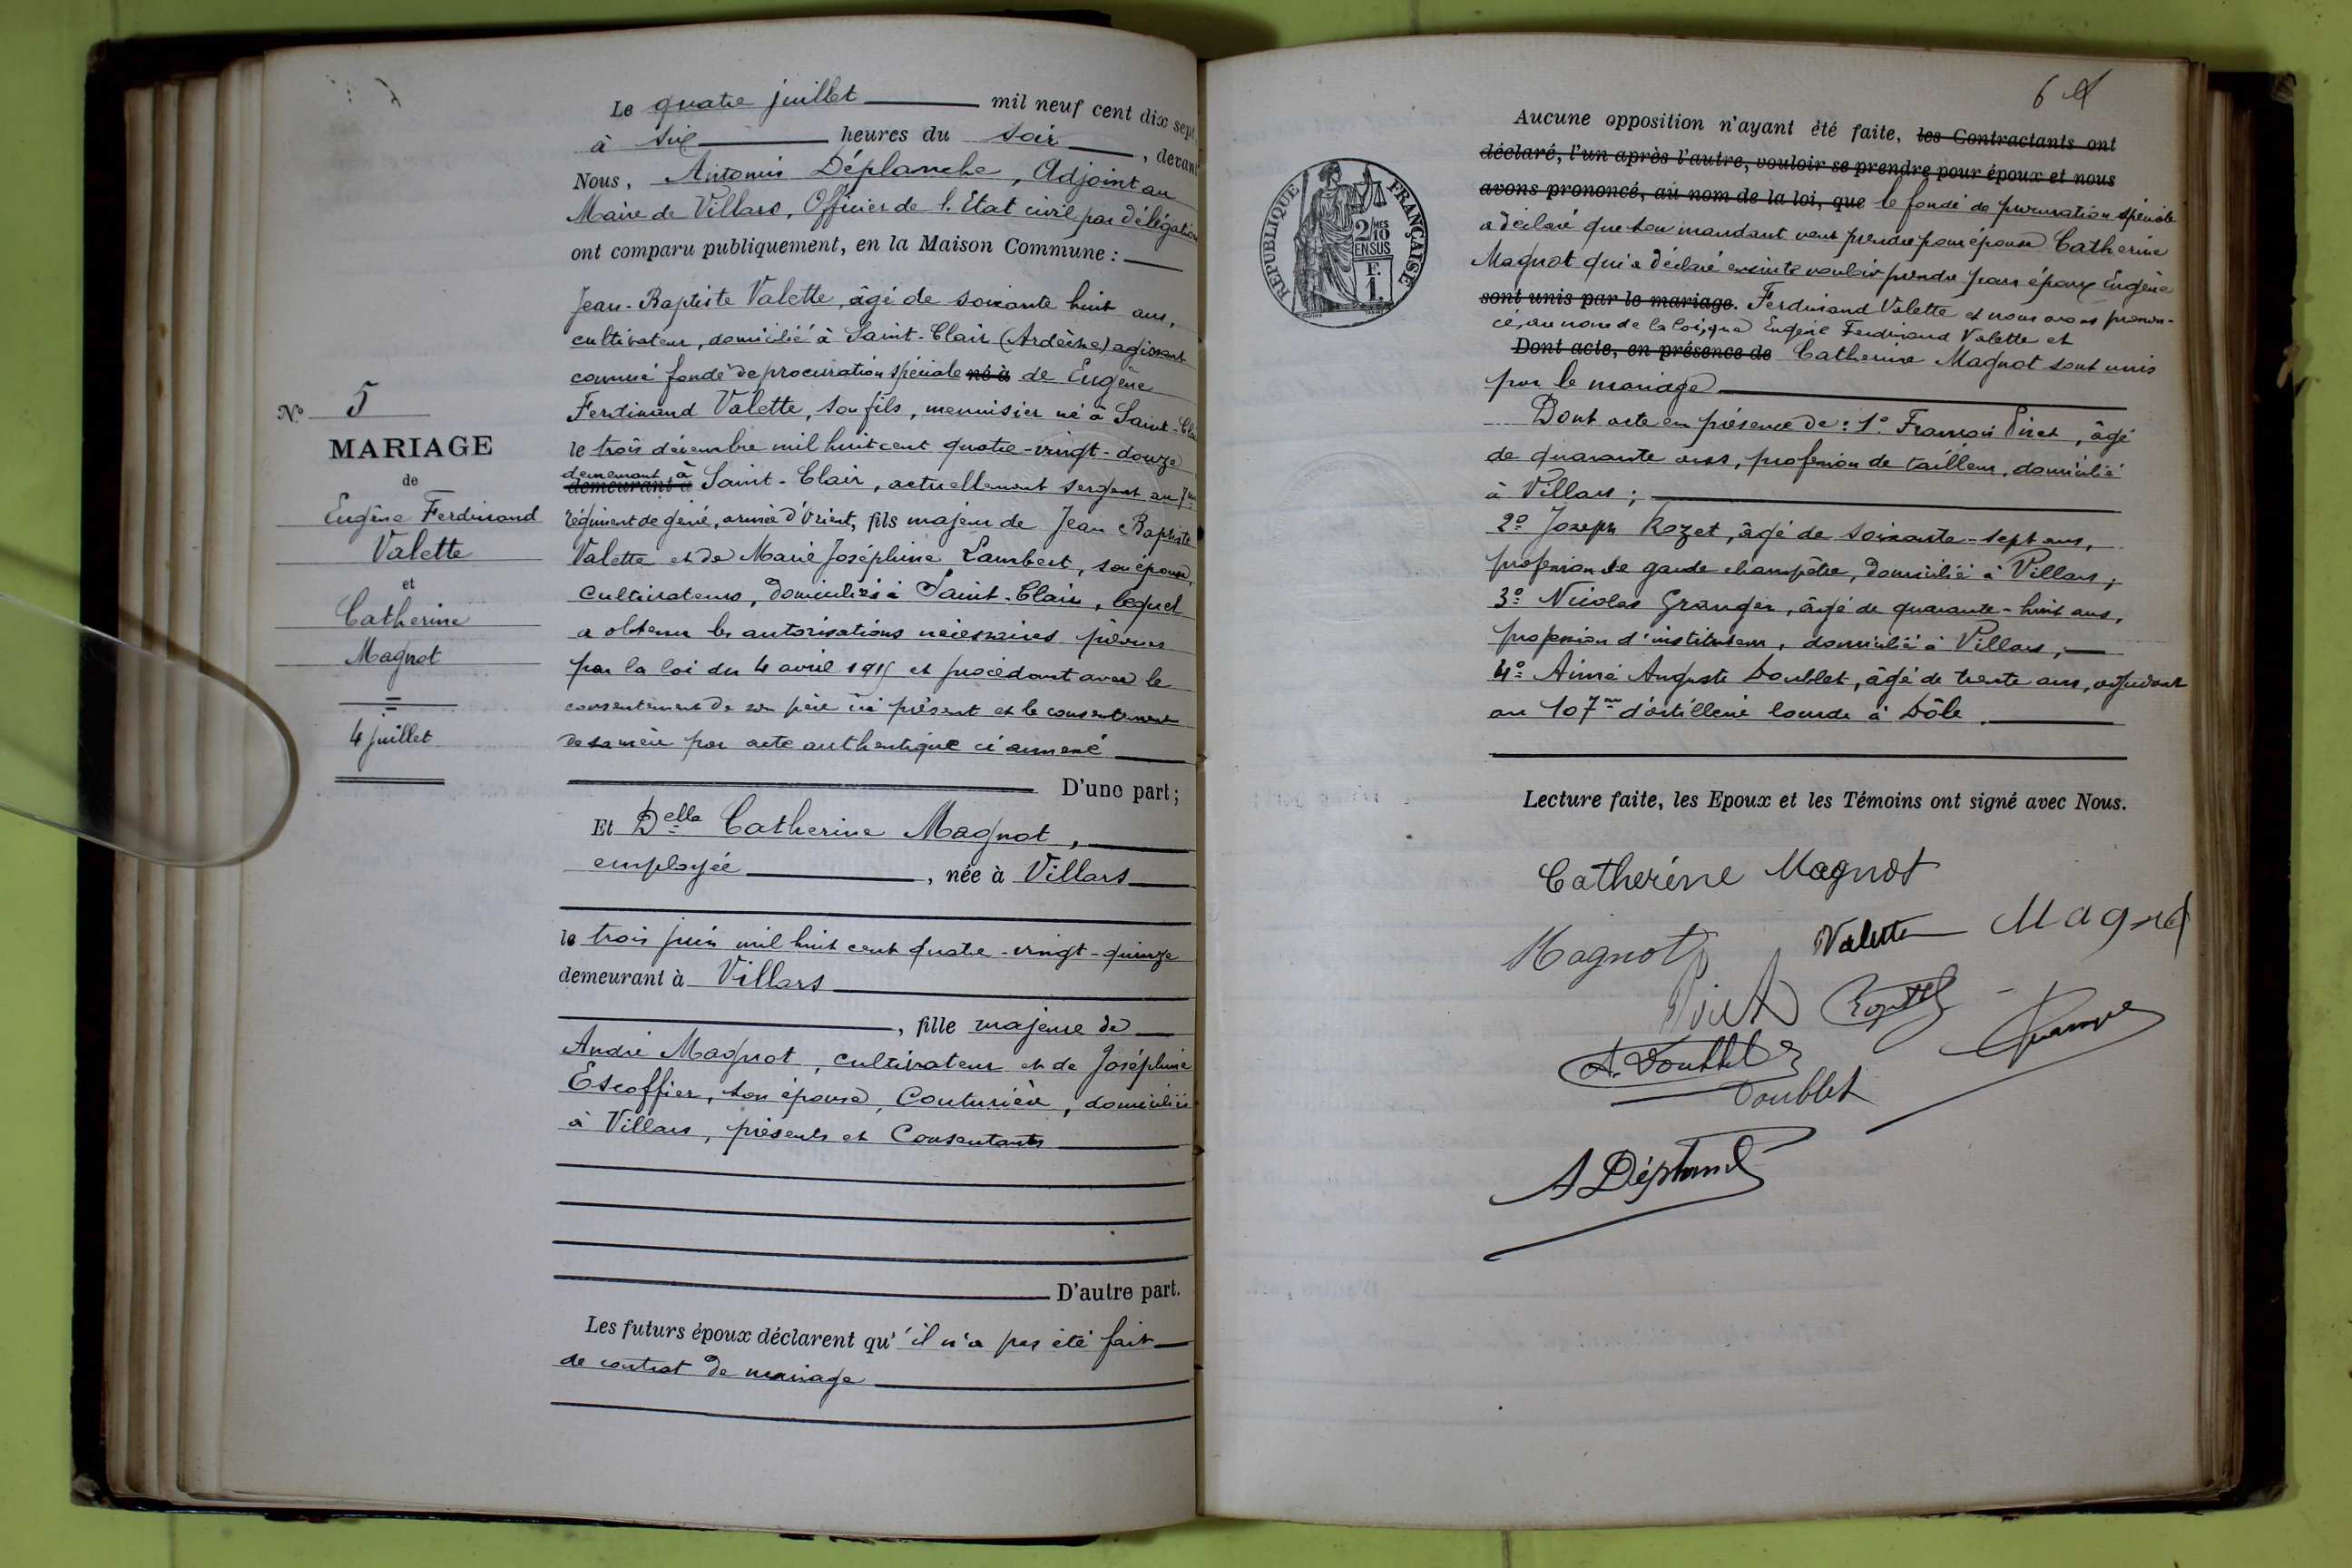 Le quatre juillet mil neuf cent dix sept
à six heures du soir, devant
Nous, Antonin Déplanche, Adjoint au
Maire de Villars, Officier de l'Etat civil par délégation
ont comparu publiquement, en la Maison Commune :
Jean-Baptiste Valette, âgé de soixante huit ans,
cultivateur, domicilié à Saint-Clair (Ardèche) agissant
comme fondé de procuration spéciale né à de Eugène
Ferdinand Valette, son fils, menuisier né à Saint-Clair
le trois décembre mil huit cent quatre-vingt-douze
demeurant à
demeurant à Saint-Clair, actuellement sergent au 7me
régiment de génie, armée d'Orient, fils majeur de Jean Baptiste
Valette et de Marie Joséphine Lambert, son épouse,
cultivateurs, domiciliés à Saint-Clair, lequel
a obtenu les autorisations nécessaires prévues
par la loi du 4 avril 1915 et procédant avec le
consentement de son père ici présent et le consentement
de sa mère par acte authentique ci annexé
D'une part ;
Et Delle Catherine Magnot,
employée, née à Villars
le trois juin mil huit cent quatre-vingt-quinze
demeurant à Villars
, fille majeure de
André Magnot, cultivateur et de Joséphine
Escoffier, son épouse, Couturière, domiciliés
à Villars, présents et Consentants
D'autre part.
Les futurs époux déclarent qu'il n'a pas été fait
de contrat de mariage
No 5
MARIAGE
de
Eugène Ferdinand
Valette
et
Catherine
Magnot
4 juillet
6
RÉPUBLIQUE FRANÇAISE
2/10 MES
EN SUS
F.
1.
Aucune opposition n'ayant été faite, les Contractants ont
déclaré, l'un après l'autre, vouloir se prendre pour époux et nous
avons prononcé, au nom de la loi, que le fondé de procuration spéciale
a déclaré que son mandant veut prendre pour épouse Catherine
Magnot qui a déclaré ensuite vouloir prendre pour époux Eugène
sont unis par le mariage. Ferdinand Valette et nous avons pronon-
cé, au nom de la loi, que Eugène Ferdinand Valette et
Dont acte, en présence de Catherine Magnot sont unis
par le mariage
Dont acte en présence de : 1o François Piret, âgé
de quarante ans, profession de tailleur, domicilié
à Villars ;
2o Joseph Rozet, âgé de soixante-sept ans,
profession de garde champêtre, domicilié à Villars,
3o Nicolas Granger, âgé de quarante-huit ans,
profession d'instituteur, domicilié à Villars,
4o Aimé Auguste Doublet, âgé de trente ans, adjudant
au 107me d'artillerie lourde à Dôle.
Lecture faite, les Epoux et les Témoins ont signé avec Nous.
Catherine Magnot
Magnot Valette Magnot
A. Doublet
Doublet
A Déplanche